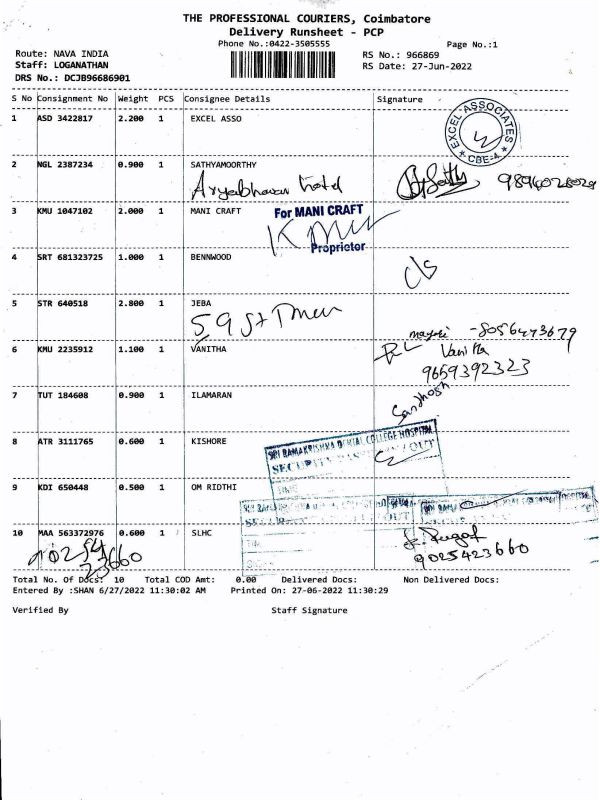 THE PROFESSIONAL COURIERS, Coimbatore
Delivery Runsheet - PCP
Phone No.:0422-3505555
Page No.:1
Route: NAVA INDIA
RS No.: 966869
Staff: LOGANATHAN
RS Date: 27-Jun-2022
DRS No.: DCJB96686901
S No Consignment No Weight PCS Consignee Details Signature
1 ASD 3422817 2.200 1 EXCEL ASSO
EXCEL ASSOCIATES
CBE-4
2 NGL 2387234 0.900 1 SATHYAMOORTHY
Aryabhavan hotel
3 KMU 1047102 2.000 1 MANI CRAFT
For MANI CRAFT
Proprietor
4 SRT 681323725 1.000 1 BENNWOOD
5 STR 640518 2.800 1 JEBA
8056473679
6 KMU 2235912 1.100 1 VANITHA
Vanitha
9659392323
7 TUT 184608 0.900 1 ILAMARAN
Santhosh
8 ATR 3111765 0.600 1 KISHORE
SRI RAMAKRISHNA DENTAL COLLEGE HOSPITAL
9 KDI 650448 0.500 1 OM RIDTHI
10 MAA 563372976 0.600 1 SLHC
90254
23660
9025423660
Total No. Of Docs: 10 Total COD Amt: 0.00 Delivered Docs: Non Delivered Docs:
Entered By :SHAN 6/27/2022 11:30:02 AM Printed On: 27-06-2022 11:30:29
Verified By Staff Signature